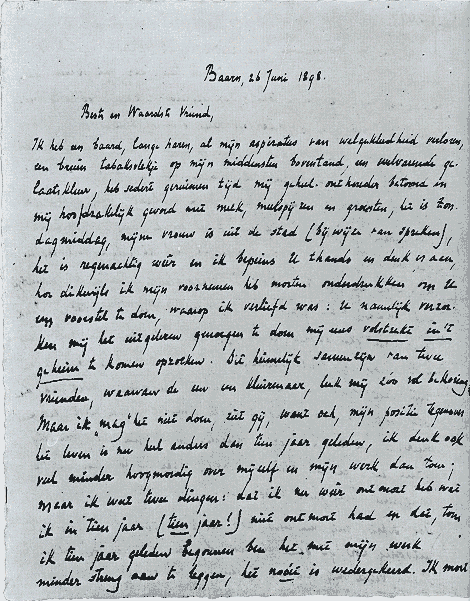 Baarn, 26 Juni 1898.
Beste en Waardste Vriend,
Ik heb een baard, lange haren, al mijn aspiraties van welgekleedheid verloren,
een bruin tabaksvlekje op mijn middensten boventand, een welvarende ge-
laatskleur, heb sedert geruimen tijd mij geheel onthouder betoond en
mij hoofdzakelijk gevoed met melk, meelspijzen en groenten, het is Zon-
dagmiddag, mijn vrouw is uit de stad (bij wijze van spreken),
het is regenachtig weer en ik bepeins U thands en denk er aan,
hoe dikwijls ik mijn voornemen heb moeten onderdrukken om U
een voorstel te doen, waarop ik verliefd was: U namelijk verzoe-
ken mij het uitgelezen genoegen te doen mij eens volstrekt in 't
geheim te komen opzoeken. Dit heimelijk samenzijn van twee
vrienden, waarvan de een een kluizenaar, leek mij zoo vol bekoring.
Maar ik "mag" het niet doen, ziet gij, want och, mijn positie tegenover
het leven is nu heel anders dan tien jaar geleden, ik denk ook
veel minder hoogmoedig over mijzelf en mijn werk dan toen;
maar ik weet twee dingen: dat ik nu weer ontmoet heb wat
ik in tien jaar (tien jaar!) niet ontmoet had en dat, toen
ik tien jaar geleden begonnen ben het met mijn werk
minder streng aan te leggen, het nooit is wedergekeerd. Ik moet